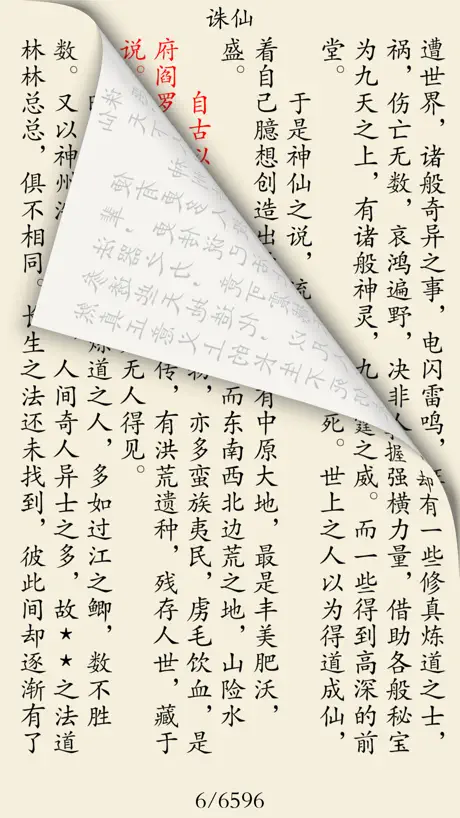 诛仙
遭世界，诸般奇异之事，电闪雷鸣，
却有一些修真炼道之士，
祸，伤亡无数，哀鸿遍野，决非人
握强横力量，借助各般秘宝
为九天之上，有诸般神灵，九
庭之威。而一些得到高深的前
堂。
死。世上之人以为得道成仙，
于是神仙之说，流
着自己臆想创造出
有中原大地，最是丰美肥沃，
盛。
而东南西北边荒之地，山险水
自古以
物，亦多蛮族夷民，虏毛饮血，是
府阎罗
传，有洪荒遗种，残存人世，藏于
说。
无人得见。
炼道之人，多如过江之鲫，数不胜
数。又以神州浩
人间奇人异士之多，故★★之法道
林林总总，俱不相同。长生之法还未找到，彼此间却逐渐有了
6/6596